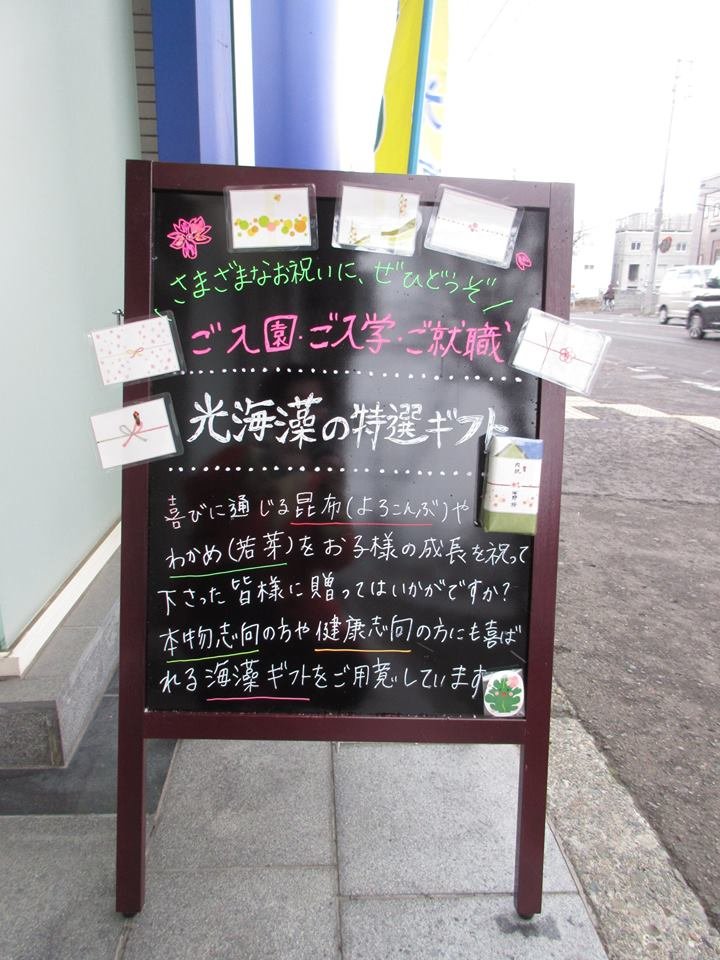 さまざまなお祝いに、ぜひどうぞ
ご入園・ご入学・ご就職
光海藻の特選ギフト
喜びに通じる昆布(よろこんぶ)や
わかめ(若芽)をお子様の成長を祝って
下さった皆様に贈ってはいかがですか?
本物志向の方や健康志向の方にも喜ば
れる海藻ギフトをご用意しています
内祝